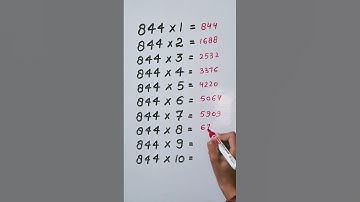 844 x 1 = 844
844 x 2 = 1688
844 x 3 = 2532
844 x 4 = 3376
844 x 5 = 4220
844 x 6 = 5064
844 x 7 = 5909
844 x 8 = 67
844 x 9 =
844 x 10 =